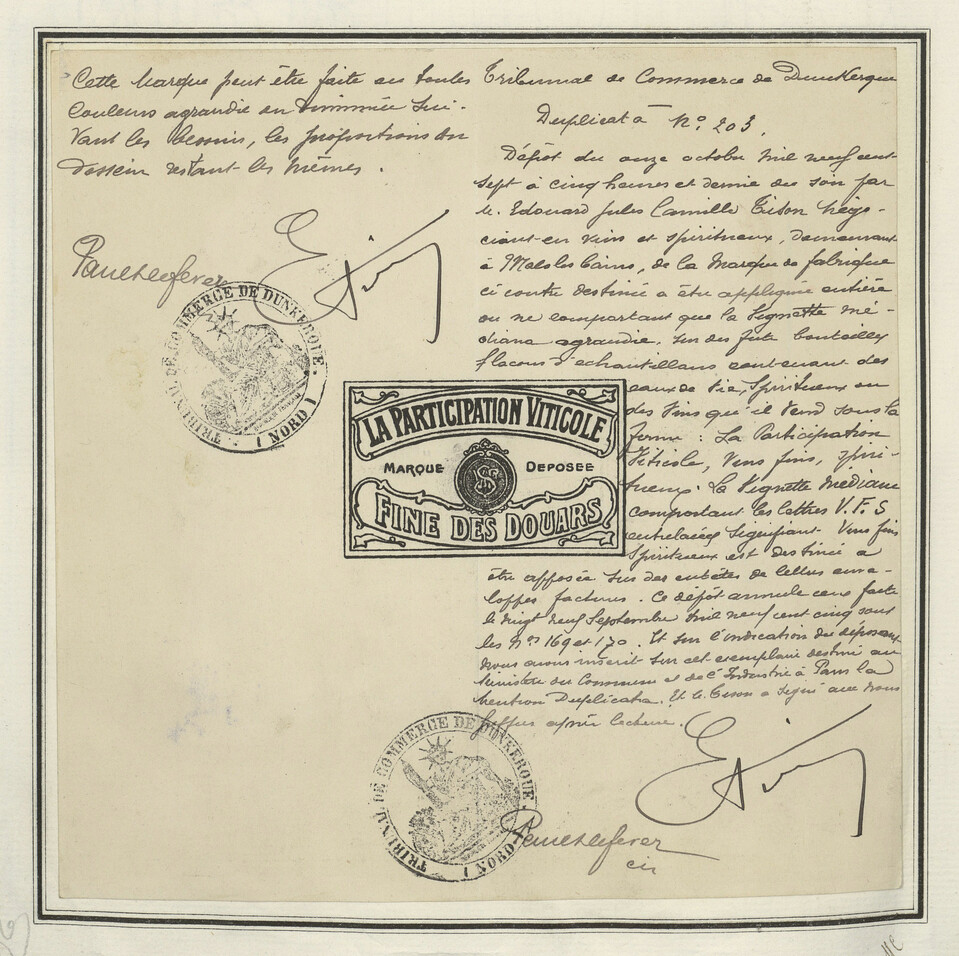 Cette Marque peut être faite en toutes
Couleurs agrandie ou diminuée sui-
vant les besoins, les proportions du
dessein restant les mêmes.
TRIBUNAL DE COMMERCE DE DUNKERQUE
( NORD )
Tribunal de Commerce de Dunkerque
Duplicata No. 203.
Dépôt du onze octobre mil neuf cent
sept à cinq heures et demie du soir par
M. Edouard Jules Camille Tison négo-
ciant en vins et spiritueux, demeurant
à Malo les Bains, de la marque de fabrique
ci contre destinée à être appliquée entière
ou ne comportant que la Vignette mé-
diane agrandie, sur des futs bouteilles
flacons d'échantillons contenant des
eaux de vie, Spiritueux ou
des Vins qu'il vend sous la
forme : La Participation
Viticole, Vins fins, spiri-
tueux. La Vignette médiane
comportant les lettres V. F. S
entrelacées signifiant Vins fins
Spiritueux est destinée à
être apposée sur des entêtes de lettres enve-
loppes factures. Ce dépôt annule ceux faits
le vingt neuf Septembre mil neuf cent cinq sous
les Nos 169 et 170. Et sur l'indication du déposant
nous avons inscrit sur cet exemplaire destiné au
Ministère du Commerce et de l'Industrie à Paris la
mention Duplicata. Et M. Tison a signé avec nous
greffier après lecture.
LA PARTICIPATION VITICOLE
MARQUE DEPOSEE
FINE DES DOUARS
TRIBUNAL DE COMMERCE DE DUNKERQUE
( NORD )